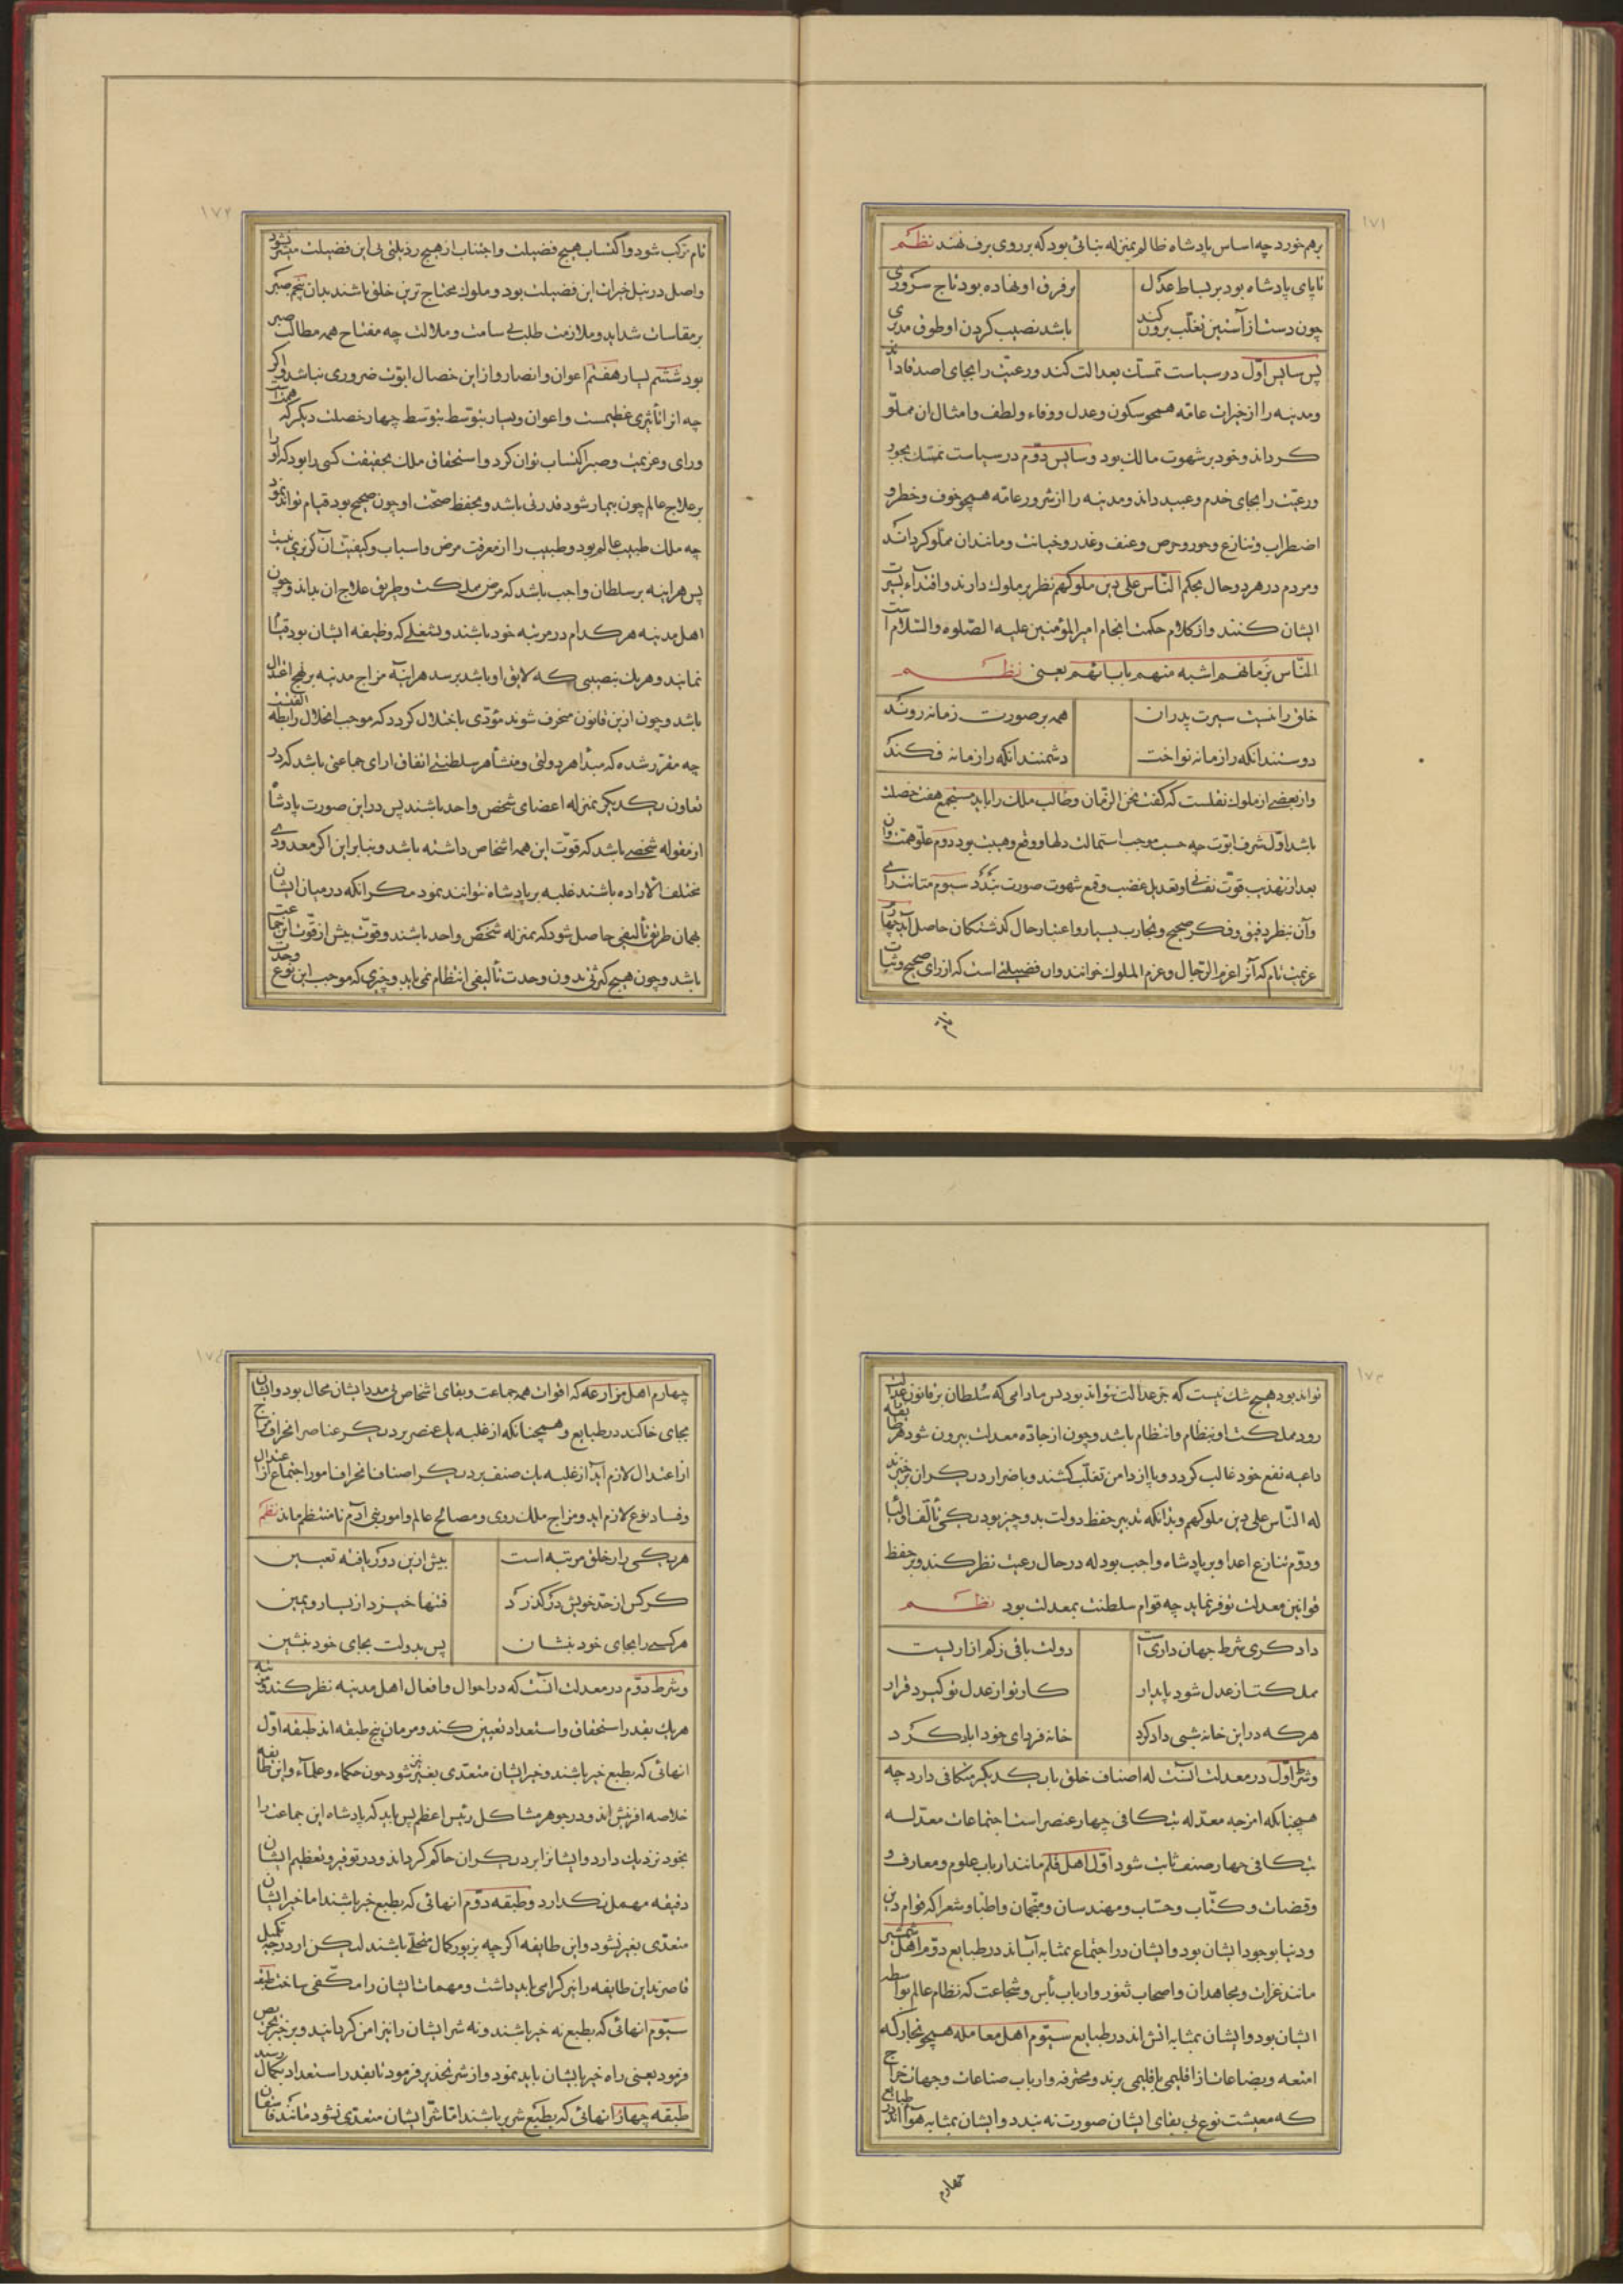 ۱۷۱
برهم خورد چه اساس پادشاه ظالم بمنزله بنائی بود که بر روی برف نهند نظم
تا پای پادشاه بود بر بساط عدل
بر فرق او نهاده بود تاج سروری
چون دست از آستین تغلب برون کند
باشد نصیب کردن او طوق مدبری
پس سایس اول در سیاست تمسک بعدالت کند و رعیت را بجای اصدقا داند
و مدینه را از خیرات عامه همچو سکون و عدل و وفاء و لطف و امثال ان مملو
کرداند و خود بر شهوت مالک بود و سایس دوم در سیاست تمسک بجور
و رعیت را بجای خدم و عبید داند و مدینه را از شرور عامه همچو خوف و خطر و
اضطراب و تنازع و جور و حرص و عنف و غدر و خیانت و مانند ان مملو کرداند
و مردم در هر دو حال بحکم الناس علی دین ملوکهم نظر بر ملوک دارند و اقتداء بسیرت
ایشان کنند و از کلام حکمت انجام امیر المؤمنین علیه الصلوه والسلام است
الناس بزمانهم اشبه منهم بابائهم یعنی نظم
خلق را نیست سیرت پدران
همه بر صورت زمانه روند
دوستند انکه را زمانه نواخت
دشمنند انکه را زمانه فکند
و از بعضی از ملوک نقلست که کفت نحن الزمان و طالب ملک را باید مستجمع هفت خصلت
باشد اول شرف ابوت چه حسب موجب استمالت دلها و وقع و هیبت بود دوم علو همت و ان
بعد از تهذیب قوت نفسانی و تعدیل غضب و قمع شهوت صورت بندد سیوم متانت رای
و آن بنظر دقیق و فکر صحیح و تجارب بسیار و اعتبار حال کذشتکان حاصل آید چهارم
عزیمت تام که آنرا عزم الرجال و عزم الملوک خوانند و ان فضیلتی است که از رای صحیح و ثبات
۱۷۲
تام مرکب شود و اکتساب هیچ فضیلت و اجتناب از هیچ رذیلتی بی این فضیلت میسر نشود
و اصل در نیل خیرات این فضیلت بود و ملوک محتاج ترین خلق باشند بدان پنجم صبر
بر مقاسات شداید و ملازمت طلب بی سامت و ملالت چه مفتاح همه مطالب صبر
بود ششم یسار هفتم اعوان و انصار و از این خصال ابوت ضروری نباشد و اکر
چه انرا تأثیری عظیمست و اعوان و یسار بتوسط چهار خصلت دیکر که همت
و رای و عزیمت و صبر اکتساب توان کرد و استحقاق ملک بحقیقت کسی را بود که او را
بر علاج عالم چون بیمار شود قدرتی باشد و بحفظ صحت او چون صحیح بود قیام تواند نمود
چه ملک طبیب عالم بود و طبیب را از معرفت مرض و اسباب و کیفیت آن کزیری نیست
پس هراینه بر سلطان واجب باشد که مرض مملکت و طریق علاج ان بداند و چون
اهل مدینه هر کدام در مرتبه خود باشند و بشغلی که وظیفه ایشان بود قیام
نمایند و هر یک بنصیبی که لایق او باشد برسد هراینه مزاج مدینه بر نهج اعتدال
باشد و چون ازین قانون منحرف شوند مؤدی باختلال کردد که موجب انحلال رابطه الفتست
چه مقرر شده که مبدأ هر دولتی و منشأ هر سلطنتی اتفاق ارای جماعتی باشد که در
تعاون یکدیکر بمنزله اعضای شخص واحد باشند پس در این صورت پادشاه
از مقوله شخصی باشد که قوت این همه اشخاص داشته باشد و بنابراین اکر معدودی
مختلف الاراده باشند غلبه بر پادشاه نتوانند نمود مکر انکه در میان ایشان
بهمان طریق تألیفی حاصل شود که بمنزله شخص واحد باشند و قوت بیش از قوت این جماعت
باشد و چون هیچ کثرتی بدون وحدت تألیفی انتظام نمی یابد و چیزی که موجب این نوع وحدت
تواند بود هیچ شک نیست که جز عدالت نتواند بود پس مادامی که سلطان بر قانون عدالت
رود مملکت او بنظام و انتظام باشد و چون از جاده معدلت بیرون شود هر طایفه
داعیه نفع خود غالب کردد و پا از دامن تغلب کشند و باضرار دیکران برخیزند
له الناس علی دین ملوکهم و بدانکه تدبیر حفظ دولت بدو چیز بود یکی تألف اولیا
و دوم تنازع اعدا و بر پادشاه واجب بود له در حال رعیت نظر کند و بر حفظ
قوانین معدلت توفر نماید چه قوام سلطنت بمعدلت بود نظم
دادکری شرط جهان داری است
دولت باقی ز کم ازاریست
مملکت از عدل شود پایدار
کار تو از عدل تو کیرد قرار
هر که در این خانه شبی داد کرد
خانه فردای خود اباد کرد
و شرط اول در معدلت آنست له اصناف خلق با یکدیکر متکافی دارد چه
همچنانکه امزجه معدله بتکافی چهار عنصر است اجتماعات معدله
بتکافی چهار صنف ثابت شود اول اهل قلم مانند ارباب علوم و معارف و
و قضات و کتاب و حساب و مهندسان و منجمان و اطبا و شعرا که قوام دین
و دنیا بوجود ایشان بود و ایشان در اجتماع بمثابه آب اند در طبایع دوم اهل شمشیر
مانند غزات و مجاهدان و اصحاب ثغور و ارباب بأس و شجاعت که نظام عالم بواسطه
ایشان بود و ایشان بمثابه اتش اند در طبایع سیوم اهل معامله همچو تجار که
امتعه و بضاعات از اقلیمی باقلیمی برند و محترفه و ارباب صناعات و جهات خراج
که معیشت نوع بی بقای ایشان صورت نه بندد و ایشان بمثابه هوا اند در طبایع
چهارم
۱۷٤
چهارم اهل مزارعه که اقوات همه جماعت و بقای اشخاص بی مدد ایشان محال بود و ایشان
بجای خاکند در طبایع و همچنانکه از غلبه یک عنصر بر دیکر عناصر انحراف مزاج
از اعتدال لازم آید از غلبه یک صنف بر دیکر اصناف انحراف امور اجتماع از اعتدال
و فساد نوع لازم اید و مزاج ملک روی و مصالح عالم و امور بنی آدم نامنتظم ماند نظم
هر یکی را ز خلق مرتبه است
پیش ازین دور یافته تعیین
کر کس از حد خویش درکذرد
فتنها خیزد از یسار و یمین
هر کسی را بجای خود بنشان
پس بدولت بجای خود بنشین
و شرط دوم در معدلت آنست که در احوال و افعال اهل مدینه نظر کند و مرتبه
هر یک بقدر استحقاق و استعداد تعیین کند و مردمان پنج طبقه اند طبقه اول
انهائی که بطبع خیر باشند و خیر ایشان متعدی بغیر شود چون حکماء و علماء و این طایفه
خلاصه افرینش اند و در جوهر مشاکل رئیس اعظم پس باید که پادشاه این جماعت را
بخود نزدیک دارد و ایشانرا بر دیکران حاکم کرداند و در توقیر و تعظیم ایشان
دقیقه مهمل نکذارد و طبقه دوم انهائی که بطبع خیر باشند اما خیر ایشان
متعدی بغیر نشود و این طایفه اکر چه بزیور کمال متحلی باشند لیکن از درجه تکمیل
قاصرند این طایفه را نیز کرامی باید داشت و مهمات ایشان را مکفی ساخت طبقه
سیوم انهائی که بطبع نه خیر باشند و نه شر ایشان را نیز امن کردانید و بر خیر تحریص
فرمود یعنی راه خیر بایشان باید نمود و از شر تحذیر فرمود تا بقدر استعداد بکمال رسند
طبقه چهارم انهائی که بطبع شریر باشند اما شر ایشان متعدی نشود مانند فاسقان